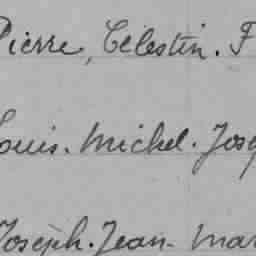 Pierre, Célestin. F
Louis. Michel. Jos
Joseph. Jean. Mar